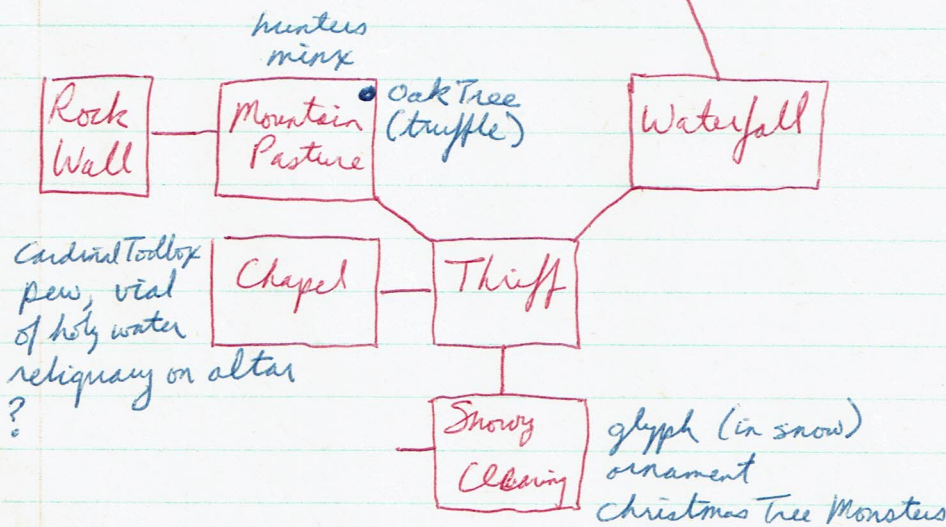 hunters
minx
Rock
Wall
Mountain
Pasture
Oak Tree
(truffle)
Waterfall
Cardinal Toolbox
pew, vial
of holy water
reliquary on altar
?
Chapel
Thriff
Snowy
Clearing
glyph (in snow)
ornament
Christmas Tree Monsters